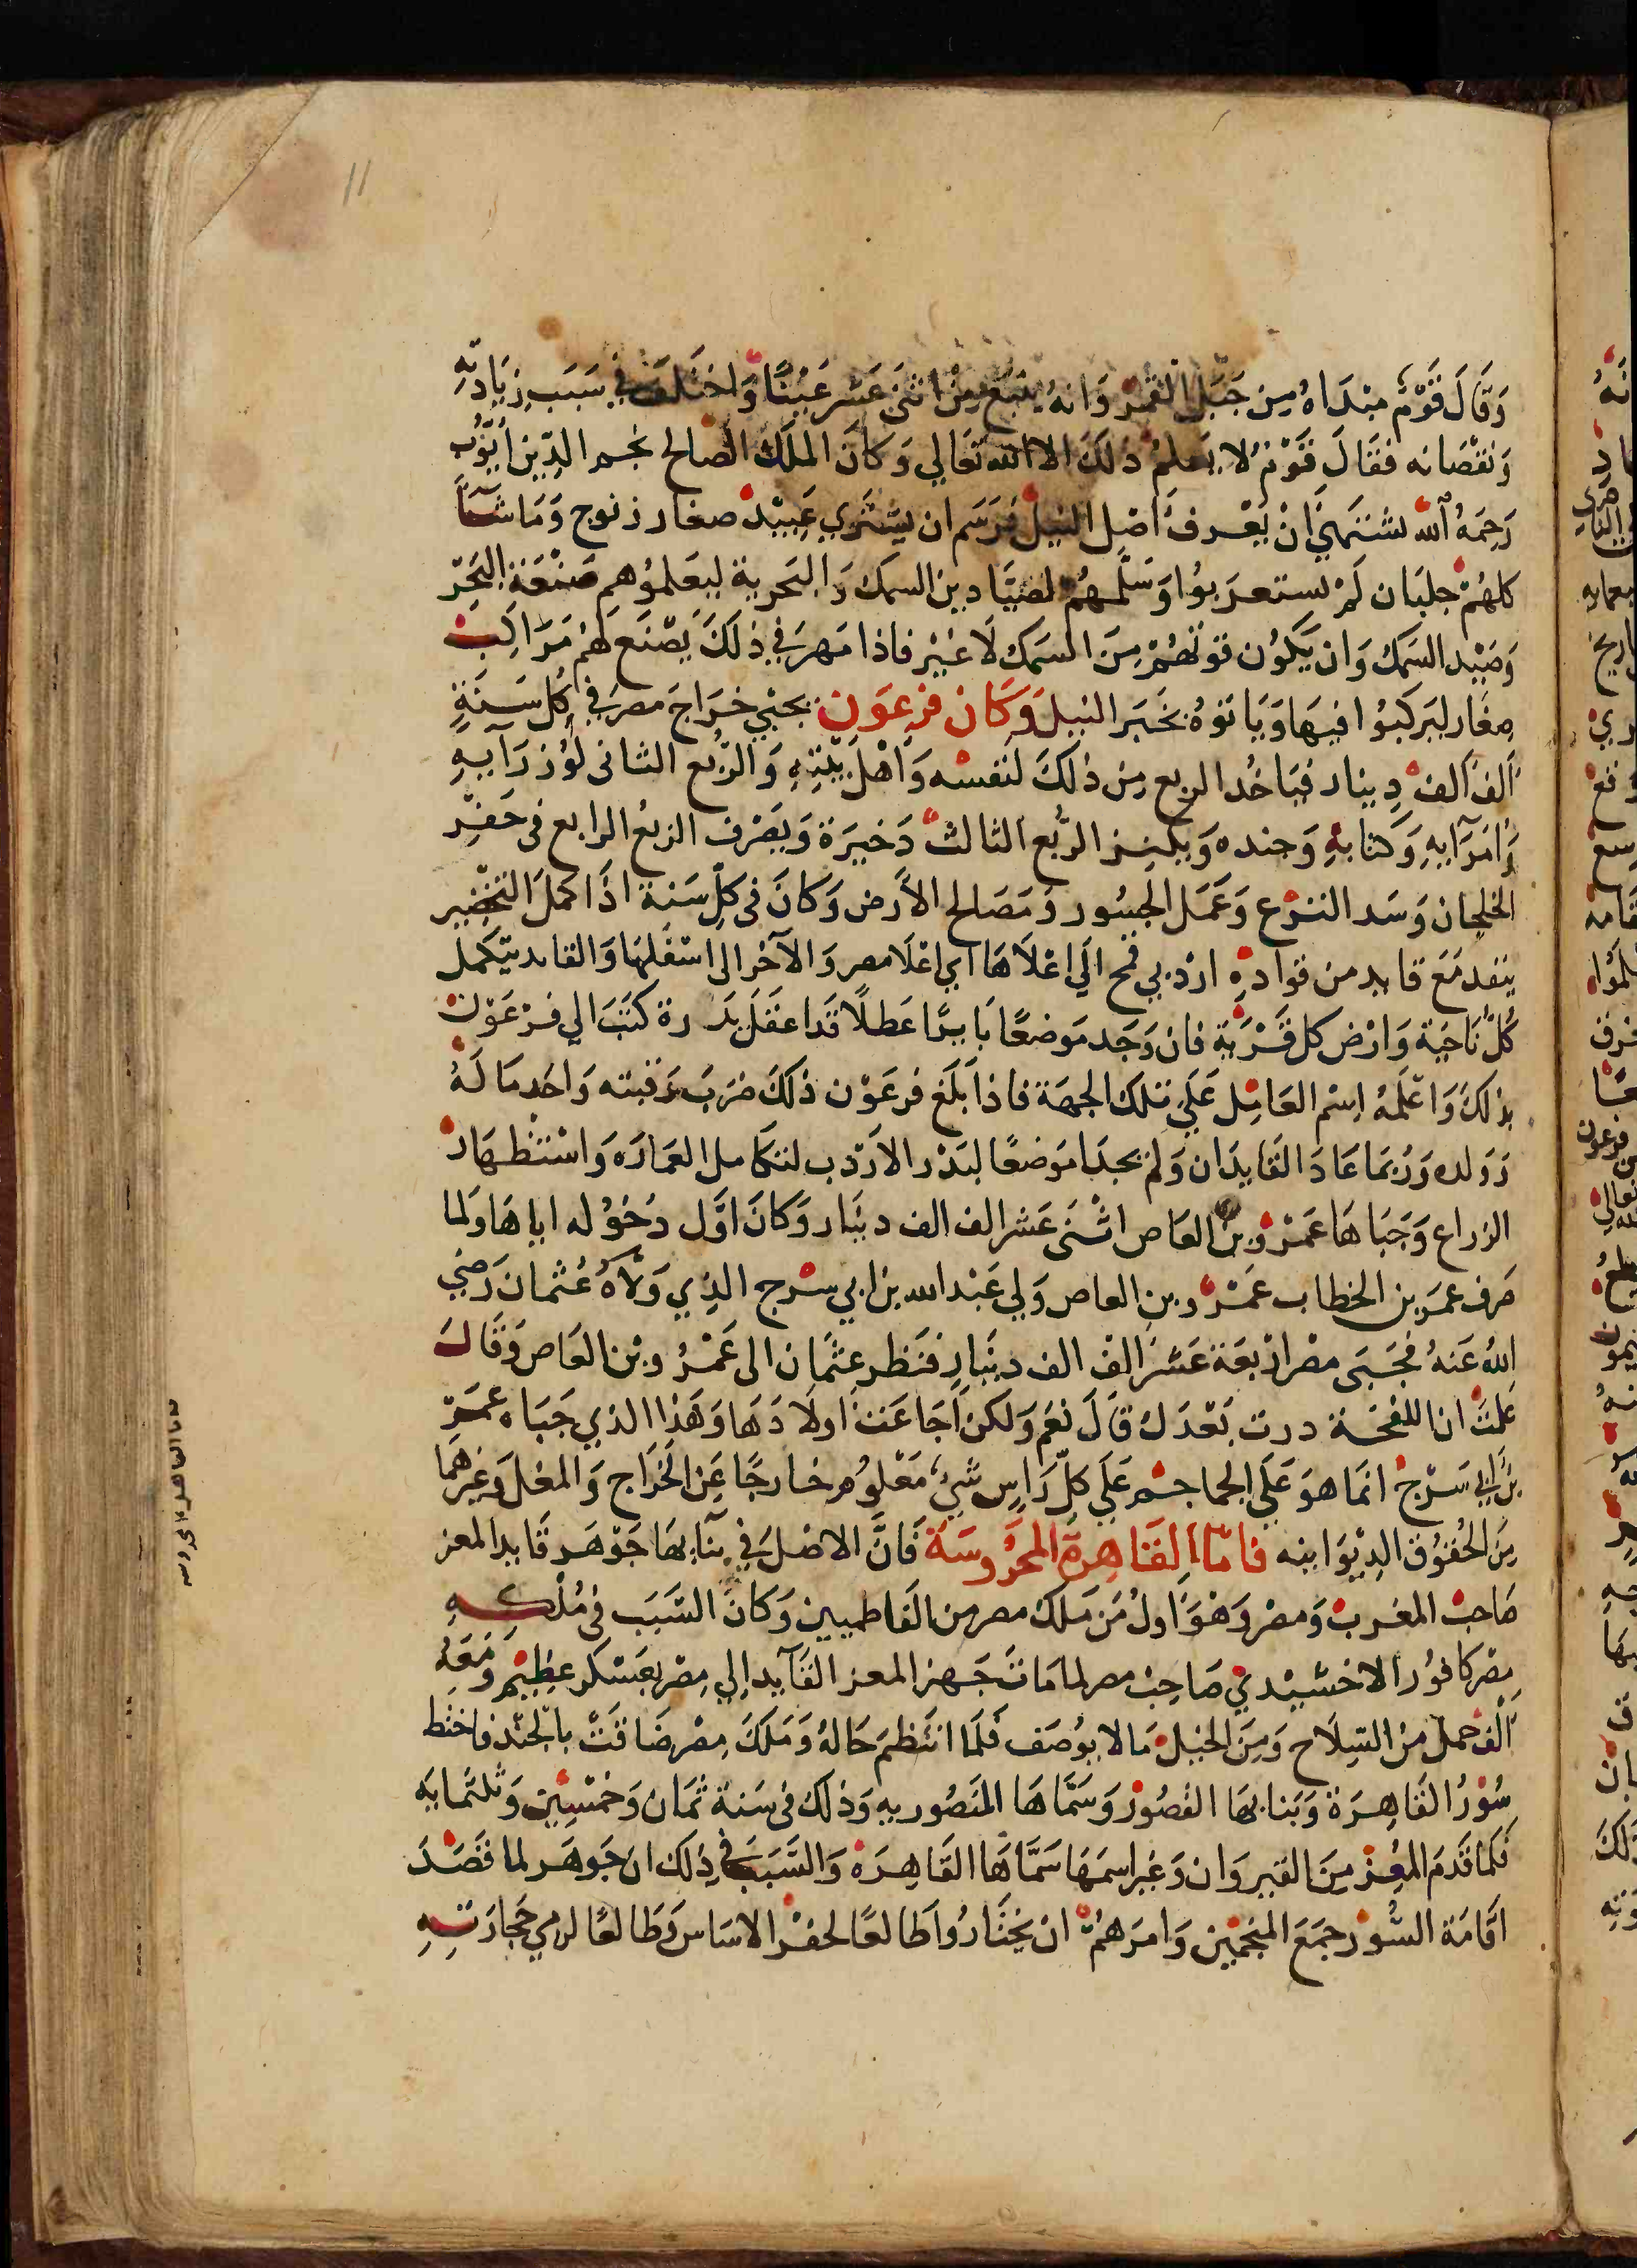 11
وَقَالَ قَوْمٌ مبْدَاهُ مِن جَبَل القمْر وَانهُ ينبَع مِنْ اثنى عَشر عَيْنًا وَاختَلفَ في سَبَب زيَادتهِ
وَنقصَانه فقَالَ قَوْم لا يَعلمُ ذلكَ الا الله تعَالي وَكانَ الملَك الصَالح نجم الدِّين أيّوب
رَحِمَهُ الله يشتهَي انْ يَعْرفَ أصْل النيل فرَسَم ان يشتَري عَبيْد صغار زنوج وَمَا شَا
كلهُمْ جلبَان لَمْ يستعرَبوُا وَسَلَّمهُمْ لصيَّادين السمك وَالبَحرية ليعَلموُهم صَنْعَة البَحْر
وَصَيْد السَمك وَان يَكوُن قوتهُمْ مِنَ السَمك لَا غيْر فاذا مَهرَ في ذلكَ يَصْنَع لهُم مَرَاكِبْ
صِغَار ليَركبُوا فيهَا وَيَاتوهُ بخَبَر النيل وَكَان فرعَون يجبْي خرَاجَ مصرَ في كُل سَنَةٍ
ألفَ ألفْ دِينار فيَاخُد الربع مِن ذلكَ لنَفسْه وَأهْل بيْتِهِ وَالرُّبع الثانى لوُزرَآيهِ
وَأمَرَآيهِ وَكتابهِ وَجنده وَيكنِز الرُّبع الثالثْ دَخيرَة وَيصَرْف الربعُ الرابع فى حَفْر
الخلجان وَسَد الترْع وَعَمَل الجسُور وَمَصَالح الاَرض وَكانَ فى كلّ سَنة اذَا كملَ التخضِير
ينفد مَعَ قايد من قوادهِ اردبي قمح الَي اعْلَاهَا اي اعْلَا مصر وَالآخر الى اسْفلهَا وَالقايد يتكَمل
كُلَّ نَاحيَة وَارْض كل قَرْيَة فان وَجَد مَوضعًا بَايرًا عَطلًا قَد اغفَل بَدره كتَبَ الي فرْعَوْن
بذلكَ وَاعْلَمُهُ اسِْم العَامِل عَلَي تلك الجهَة فاذا بَلَغ فرعَوْن ذلكَ ضرَبَ رَقبته وَاخد مَا لَهُ
وَولده وَرُبمَا عَادَ القَايدَان وَلم يجدَا مَوضعًا لبَدْر الاَرْدب لتكَامل العمَارَه وَاسْتظهَار
الزراع وَجَبَاهَا عَمْرُو بن العَاص اثنَى عَشر الف الف دينَار وَكانَ اوَّل دُخوُله اياهَا وَلما
صَرف عمرَ بن الخطاب عَمْرُو بن العاص وَلي عَبْد الله بن ابي سرْح الذي وَلَّاهُ عُثمان رَضي
اللهُ عَنهُ فجَبَى مصْر ارْبعَة عَشَر الف الف دينَار فنَظر عثمَان الى عَمْرُو بْن العَاص وَقَالَ
عَلمْت ان اللقحَة درت بَعْدَكَ قالَ نعَم وَلكن أجَاعَت اولَادهَا وَهَذا الذي جَبَاه عمَر
بن ابي سَرْح انمَا هوَ عَلَي الجماجم عَلَي كلّ رَاس شَيْء مَعْلوُم خارجًا عَن الخَرَاج وَالمغل وَغيرهمَا
مِنَ الحُقوُق الدِيْوَانيه فامّا القَاهِرة المحْرُوسَة فَانَّ الاصْل في بنآيهَا جَوْهَر قَايد المعز
صَاحبْ المغربْ وَمصْر وَهْوَ اولُ مَن مَلكَ مصر من الفَاطميين وَكانَ السَّبَب فى مُلْكِهِ
مِصْر كافوُر الاخشيْدي صَاحِبْ مصر لما مَات جَهز المعز القآيد الي مِصْر بعَسْكر عِظيْم وَمَعَهُ
ألف حمل مِن السِلَاح وَمِنَ الخيْل مَا لا يوُصَف فلَما انتَظمَ حَالهُ وَمَلكَ مِصْر ضَاقتْ بالجُند فاختط
سُوْرُ القَاهِرَة وَبَنا بهَا القصُورْ وَسَمَّاهَا المنَصُوريهِ وَذلكَ فى سَنة ثمَان وَخمْسِين وَثلثمايَه
فَلمَا قَدمَ المُعِز مِنَ القيروَان وَغير اسمَهَا سَمَّاهَا القَاهِرَة وَالسَّبَبَ في ذلك ان جَوهَر لما قَصَدَ
اقَامَة السُّوْر جمَعَ المنجمْين وَامرَهُمْ انْ يختَارُوا طَالعًا لحفْر الاسَاس وَطَالعًا لرمي حجَارَتهِ